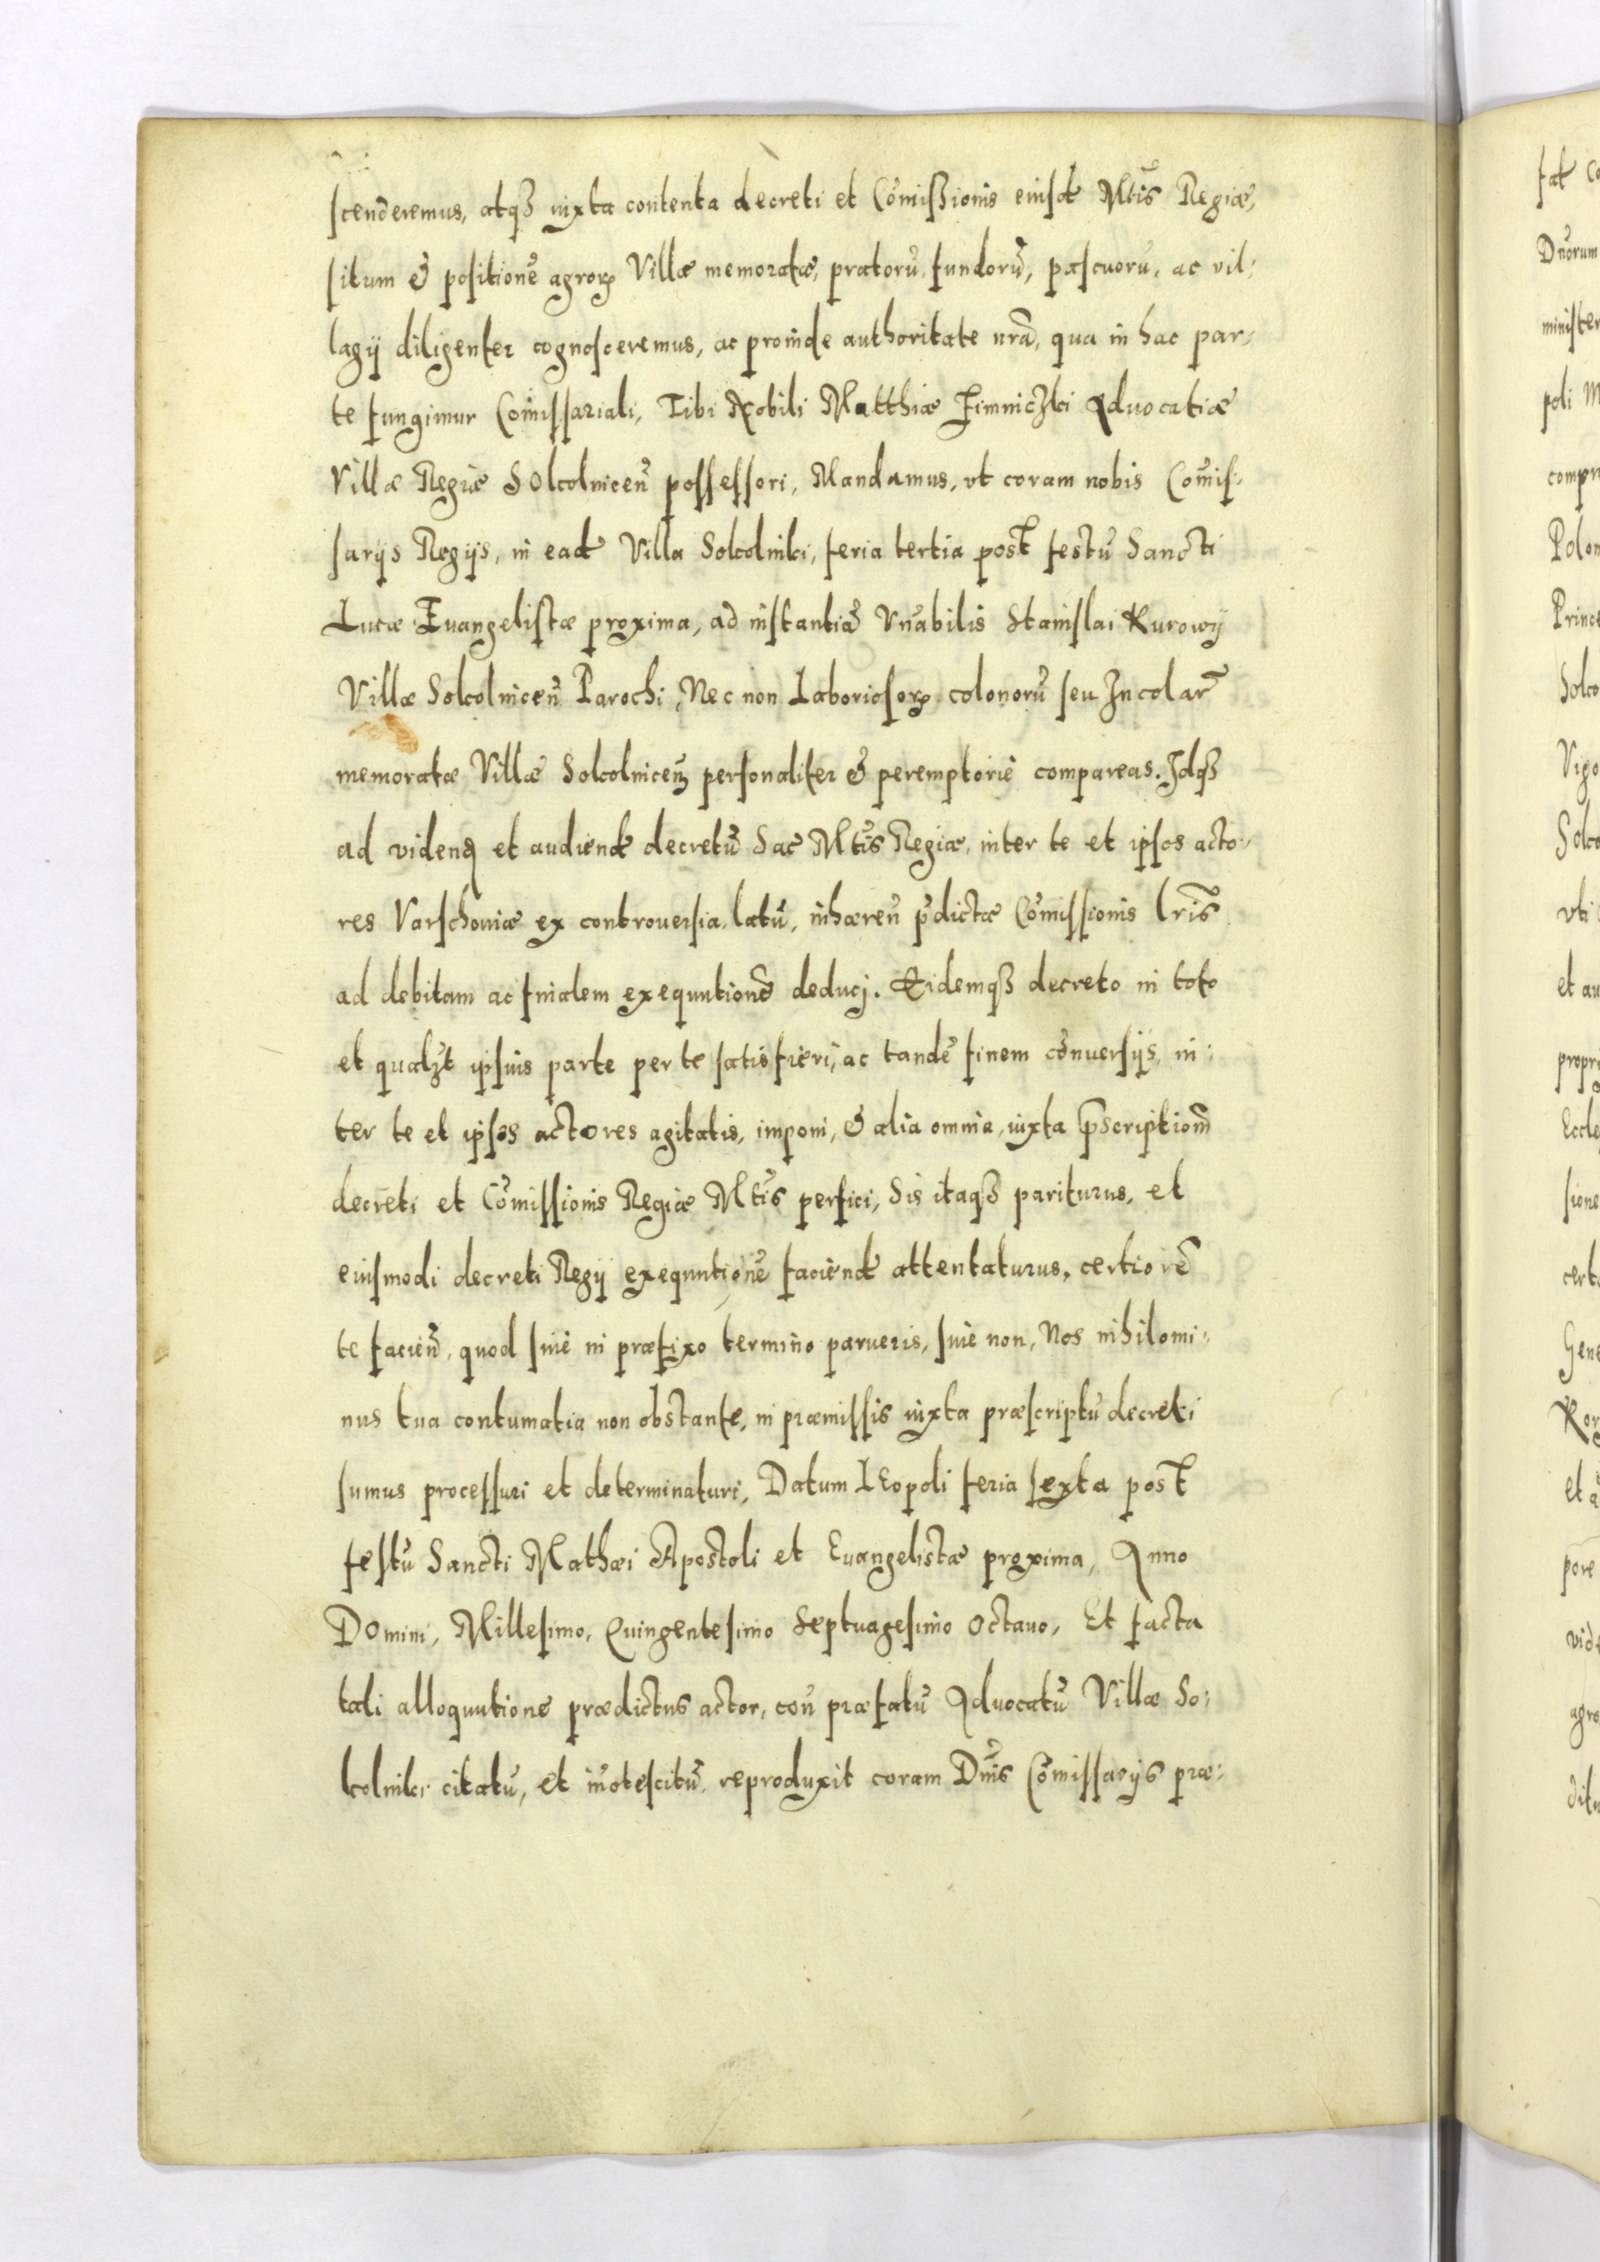 scenderemus, atq₃ iuxta contenta decreti et Comissionis eiusd Mtis Regiæ,
situm & positione agroꝝ Villæ memoratæ, pratorū fundorū, pascuoru, ac vil-
lagÿ diligenter cognosceremus, ac proinde authoritate nrā, qua in hac par-
te fungimur Comissariali, Tibi Nobili Matthiæ Advocatiæ
Villæ Regiæ Solcolniceñ possessori, Mandamus, vt coram nobis Comis-
sarijs Regijs, in ead Villa Solcolniki, feria tertia post festū Sancti
Lucæ Euangelistæ proxima, ad instantiā Vnabilis Stanislai Kurowÿ
Villæ Solcolniceñ Parochi, Nec non Laboriosoꝝ colonorū seu Incolar̄
memoratæ Villæ Solcolniceñ personaliter & peremptoriè compareas. Idq₃
ad videnꝗ et audiend decretū Sac Mtis Regiæ, inter te et ipsos acto-
res Varschoviæ ex controuersia latū, inhæreñ p̄dictæ Comissionis Lris
ad debitam ac finalem exequutionē deduci. Eidemq₃ decreto in toto
et qualꝫt ipsius parte per te satisfieri, ac tandē finem cōnuersijs, in-
ter te et ipsos actores agitatis, imponi, & alia omnia, iuxta p̄scriptionē
decreti et Cōmissionis Regiæ Mtis perfici, Sis itaq₃ pariturus, et
eiusmodi decreti Regÿ exequutionē faciend attentaturus, certiorē
te facieñ, quod siuè in præfixo termino parueris, siuè non, Nos nihilomi-
nus tua contumatia non obstante, in præmissis iuxta præscriptū decreti
sumus processuri et determinaturi, Datum Leopoli feria sexta post
festū Sancti Mathæi Apostoli et Euangelistæ proxima, Anno
Domini, Millesimo, Quingentesimo Septuagesimo Octauo, Et facta
tali alloquutione prædictus actor, coñ præfatū Advocatū Villæ So-
lcolniki citatū, et iñotescitū reproduxit coram Dnis Cōmissarijs præ-